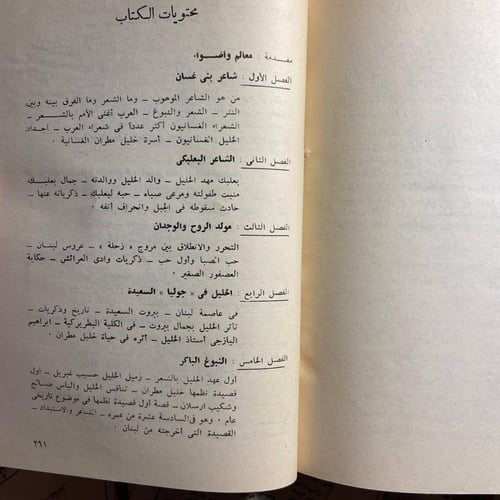 محتويات الكتاب
مقدمة : معالم وأضواء
الفصل الأول : شاعر بنى غسان
من هو الشاعر الموهوب ــ وما الشعر وما الفرق بينه وبين
النثر ــ الشعر والنبوغ ــ العرب أغنى الأمم بالشعر ــ
الشعراء الغسانيون أكثر عدداً فى شعراء العرب ــ أجداد
الخليل الغسانيون ــ أسرة خليل مطران الغسانية .
الفصل الثانى : الشاعر البعلبكى
بعلبك مهد الخليل ــ والد الخليل ووالدته ــ جمال بعلبك
منبت طفولته ومرعى صباه ــ حبه لبعلبك ــ ذكرياته عنها ــ
حادث سقوطه فى الجبل وانحراف أنفه .
الفصل الثالث : مولد الروح والوجدان
التحرر والانطلاق بين مروج « زحلة » ــ عروس لبنان ــ
حب الصبا وأول حب ــ ذكريات وادى العرائش ــ حكاية
العصفور الصغير .
الفصل الرابع : الخليل فى « جوليا » السعيدة
فى عاصمة لبنان ــ بيروت السعيدة ــ تاريخ وذكريات ــ
تأثر الخليل بجمال بيروت ــ فى الكلية البطريركية ــ ابراهيم
اليازجى أستاذ الخليل ــ أثره فى حياة خليل مطران .
الفصل الخامس : النبوغ الباكر
أول عهد الخليل بالشعر ــ زميل الخليل حبيب غبريل ــ أول
قصيدة نظمها خليل مطران ــ تنافس الخليل والياس صالح
وشكيب ارسلان ــ قصة أول قصيدة نظمها فى موضوع تاريخى
عام . وهو فى السادسة عشرة من عمره ــ الشاعر والاستبداد ــ
القصيدة التى أخرجته من لبنان .
٢٦١